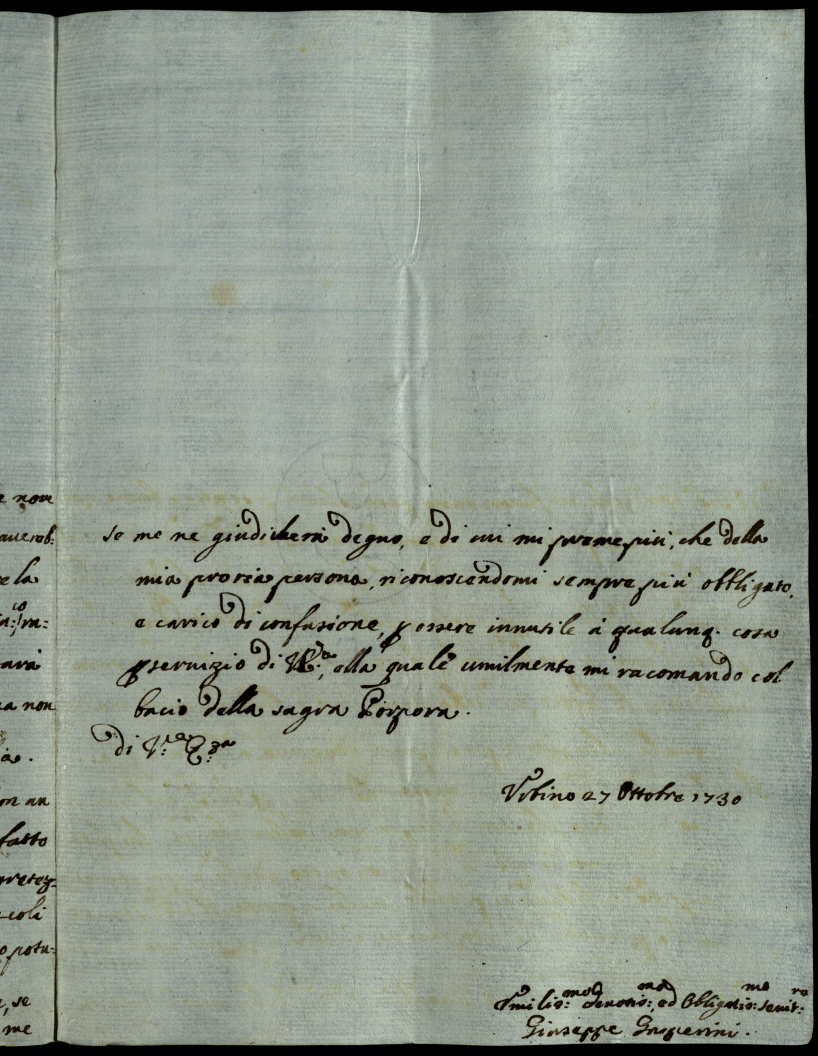 e none
auerob:
re la
cara
ca non
on an
fatto
coli
o potu=
, se
me
se me ne giudicherà degno, e di cui mi preme più, che della
mia propria persona, riconoscendomi sempre più obbligato,
e carico di confusione, p essere innutile à qualunq. cosa
p servizio di V.E.za, alla quale umilmente mi racomando col
bacio della sagra Porpora.
di V:a E:za
Urbino 27 Ottobre 1730
Umilis:mo Devotis:mo, ed Obligatis:mo Servit:re
Giuseppe